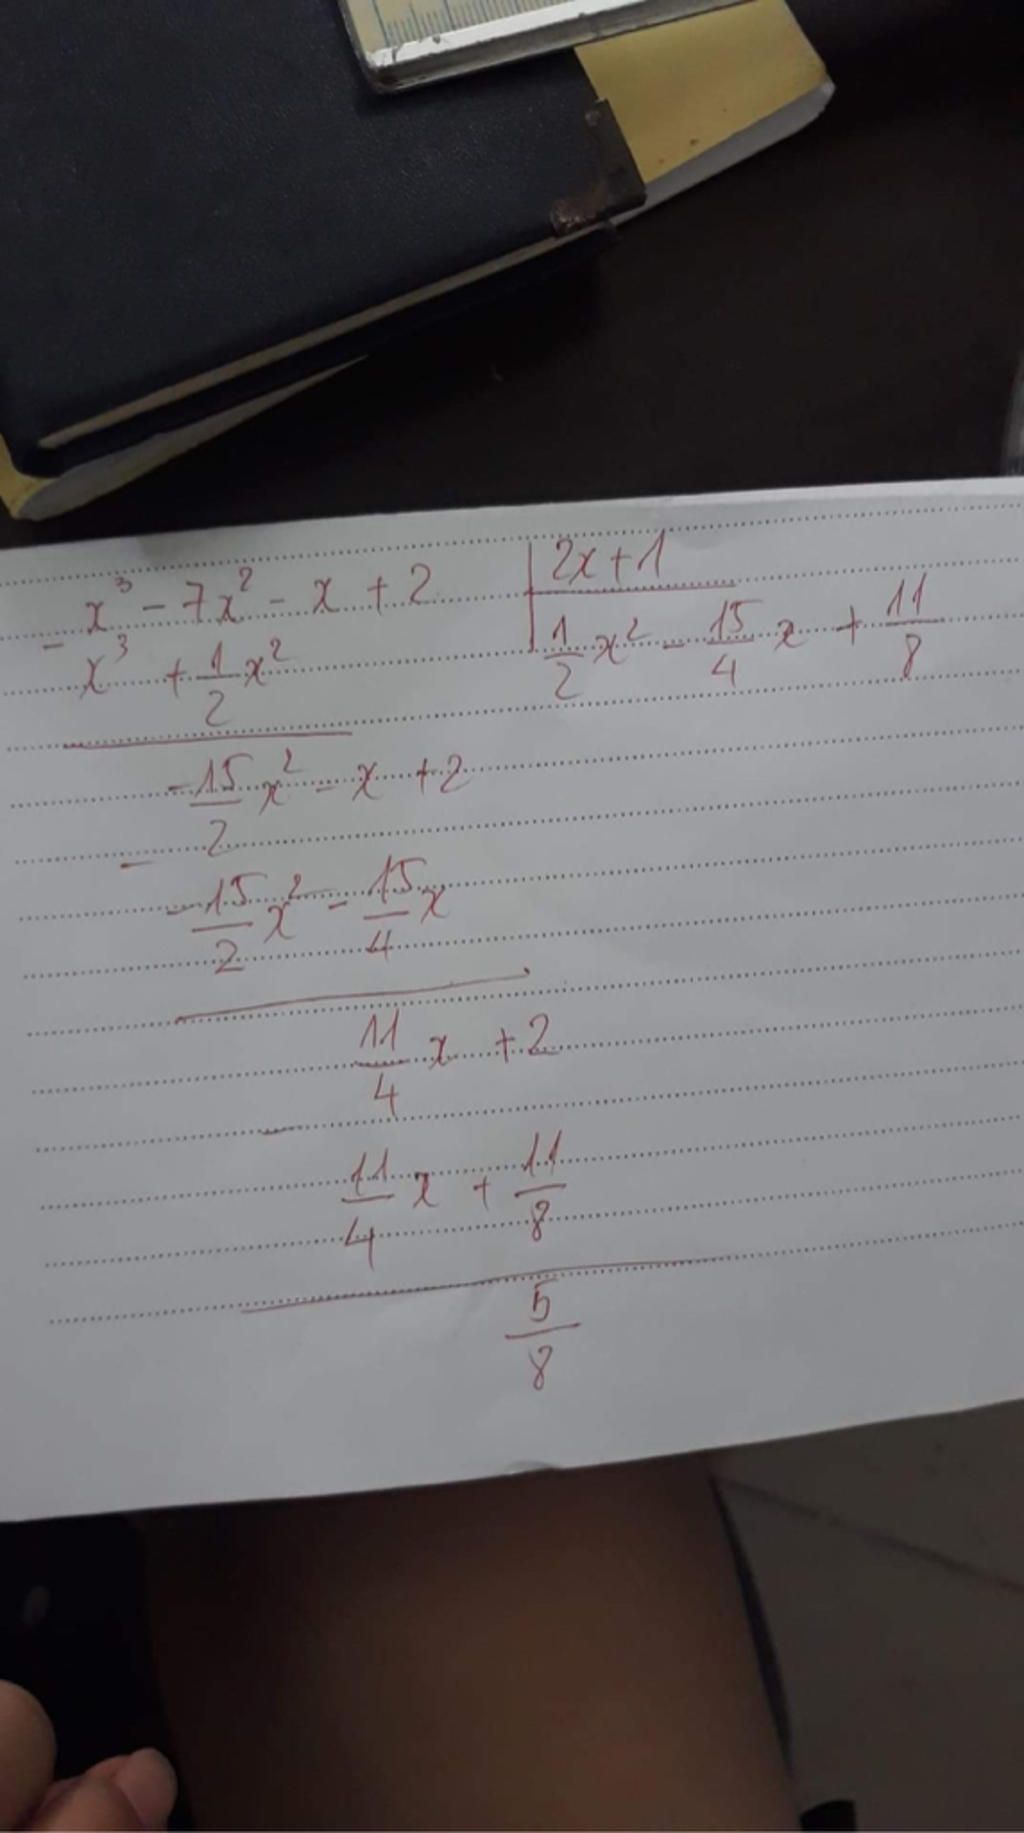 x³ - 7x² - x + 2 | 2x + 1
- x³ + 1/2 x² | 1/2 x² - 15/4 x + 11/8
-15/2 x² - x + 2
-
-15/2 x² - 15/4 x
11/4 x + 2
-
11/4 x + 11/8
5/8